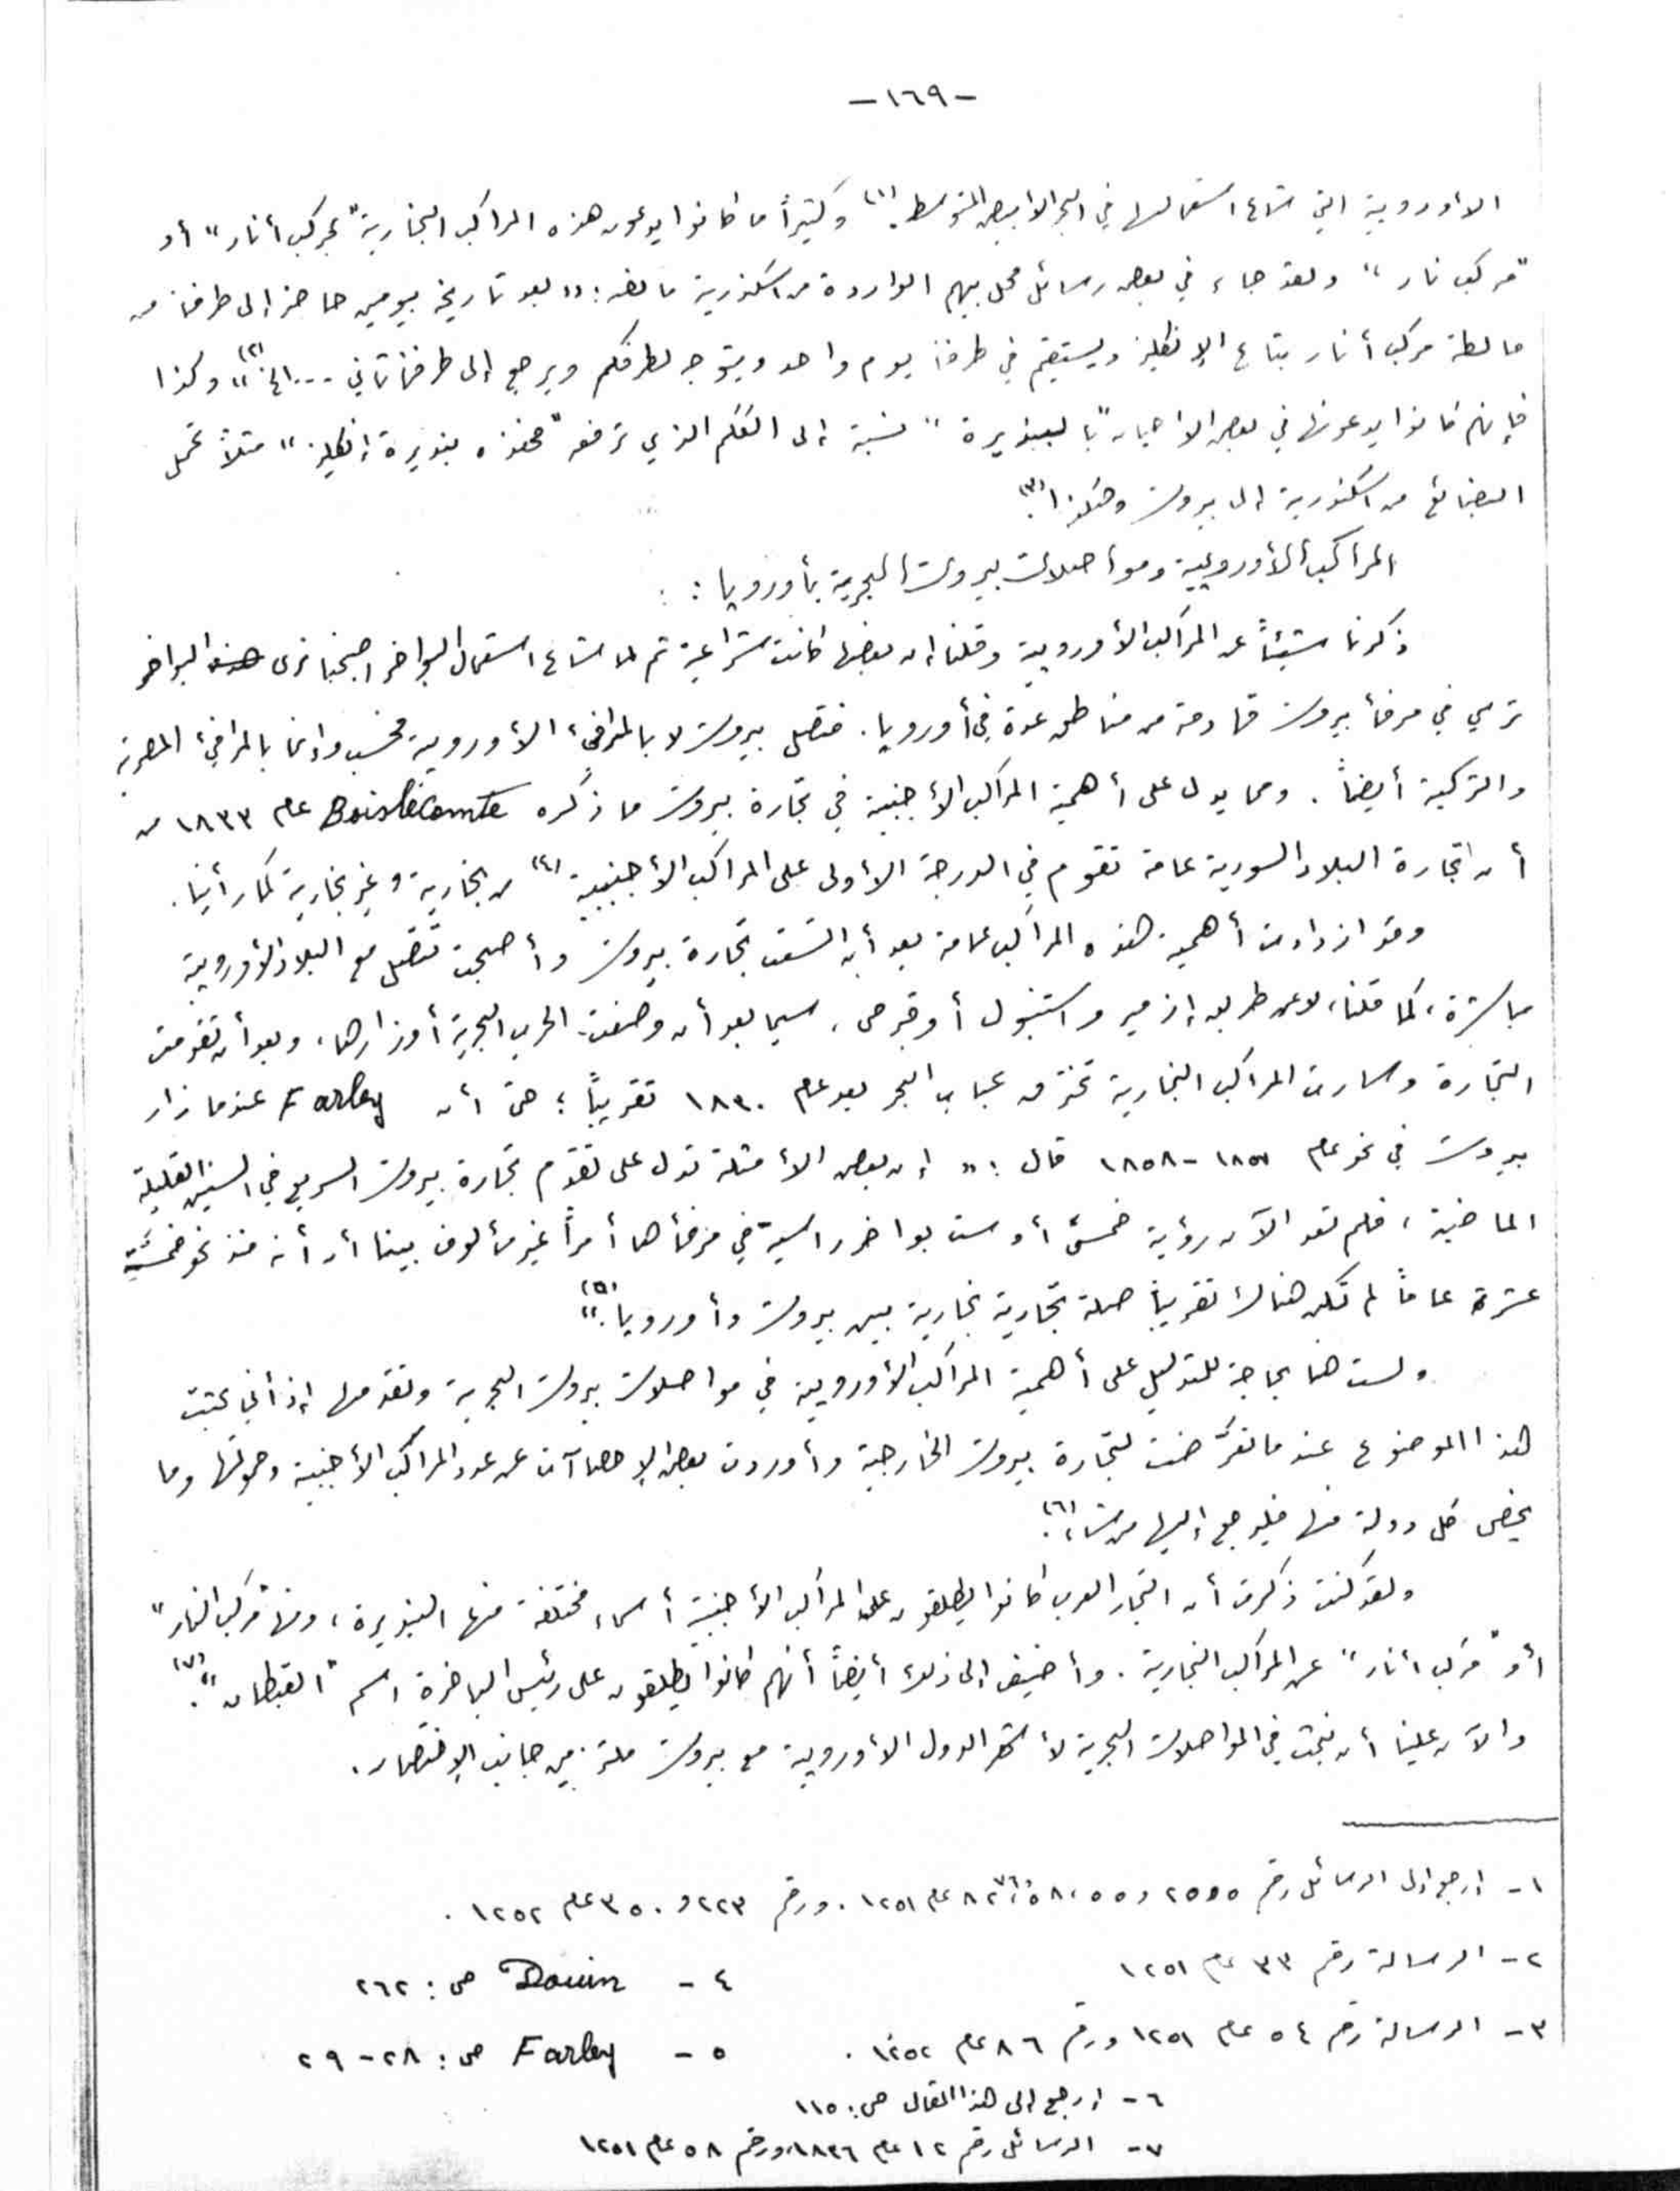 -١٦٩-
الأوروبية التي شاع استعمالها في البحر الأبيض المتوسط.(١) وكثيراً ما كانوا يدعون هذه المراكب البخارية "بمركب أنار" أو
"مركب نار" ولقد جاء في بعض رسائل محل بيهم الواردة من اسكندرية ما نصه: «بعد تاريخه بيومين حاضر إلى طرفنا من
مالطة مركب أنار بتاع الإنكليز ويستقيم في طرفنا يوم واحد ويتوجه لطرفكم ويرجع إلى طرفنا ثاني ... الخ»(٢) وكذا
فإنهم كانوا يدعونها في بعض الأحيان "بالبنديرة" نسبة إلى العلم الذي ترفعه "فهذه بنديرة إنكليز" مثلاً تحمل
البضائع من اسكندرية إلى بيروت وهكذا.(٣)
المراكب الأوروبية ومواصلات بيروت البحرية بأوروبا :
ذكرنا شيئاً عن المراكب الأوروبية وقلنا إن بعضها كانت شراعية ثم لما شاع استعمال البواخر أصبحنا نرى هذه البواخر
ترسي في مرفأ بيروت قادمة من مناطق عدة في أوروبا. فتصل بيروت لا بالمرافئ الأوروبية فحسب وإنما بالمرافئ المصرية
والتركية أيضاً. ومما يدل على أهمية المراكب الأجنبية في تجارة بيروت ما ذكره Boislecomte عام ١٨٣٣ من
أن تجارة البلاد السورية عامة تقوم في الدرجة الأولى على المراكب الأجنبية(٤) من بخارية وغير بخارية كما رأينا.
وقد ازدادت أهمية هذه المراكب عامة بعد أن اتسعت تجارة بيروت وأصبحت تتصل مع البلاد الأوروبية
مباشرة، كما قلنا، لا عن طريق إزمير واستنبول أو قبرص، سيما بعد أن وضعت الحرب البحرية أوزارها، وبعد أن تقدمت
التجارة وسارت المراكب البخارية تخترق عباب البحر بعد عام ١٨٣٠ تقريباً ؛ حتى أن Farley عندما زار
بيروت في نحو عام ١٨٥٧-١٨٥٨ قال : « إن بعض الأمثلة تدل على تقدم تجارة بيروت السريع في السنين القليلة
الماضية ، فلم تعد الآن رؤية خمس أو ست بواخر راسية في مرفأها أمراً غير مألوف بينما أن أنه منذ نحو خمسة
عشرة عاماً لم تكن هناك تقريباً صلة تجارية بخارية بين بيروت وأوروبا.»(٥)
ولست هنا بحاجة للتدليل على أهمية المراكب الأوروبية في مواصلات بيروت البحرية وتقدمها إذ أني بحثت
هذا الموضوع عندما تعرَّضت لتجارة بيروت الخارجية وأوردت بعض الإحصاآت عن عدد المراكب الأجنبية وحمولتها وما
يخص كل دولة منها فليرجع إليها من شاء.(٦)
ولقد كنت ذكرت أن التجار العرب كانوا يطلقون على المراكب الأجنبية أسماء مختلفة منها البنديرة، ومنها "مركب النار"
أو "مركب أنار" عن المراكب البخارية. وأضيف إلى ذلك أيضاً أنهم كانوا يطلقون على رئيس الباخرة اسم "القبطان".(٧)
والآن علينا أن نبحث في المواصلات البحرية لأشهر الدول الأوروبية مع بيروت ملتزمين جانب الإقتصار.
١- إرجع إلى الرسائل رقم عام ١٢٥١. ورقم ٢٢٣ و ٣٥٠ عام ١٢٥٢.
٢- الرسالة رقم ٣٣ عام ١٢٥١
٣- الرسالة رقم ٥٤ عام ١٢٥١ ورقم ٨٦ عام ١٢٥٢.
٤- Douin ص: ٢٦٢
٥- Farley ص: ٢٨-٢٩
٦- إرجع إلى هذا المقال ص: ١١٥
٧- الرسائل رقم ١٢ عام ١٨٣٦، ورقم ٥٨ عام ١٢٥١